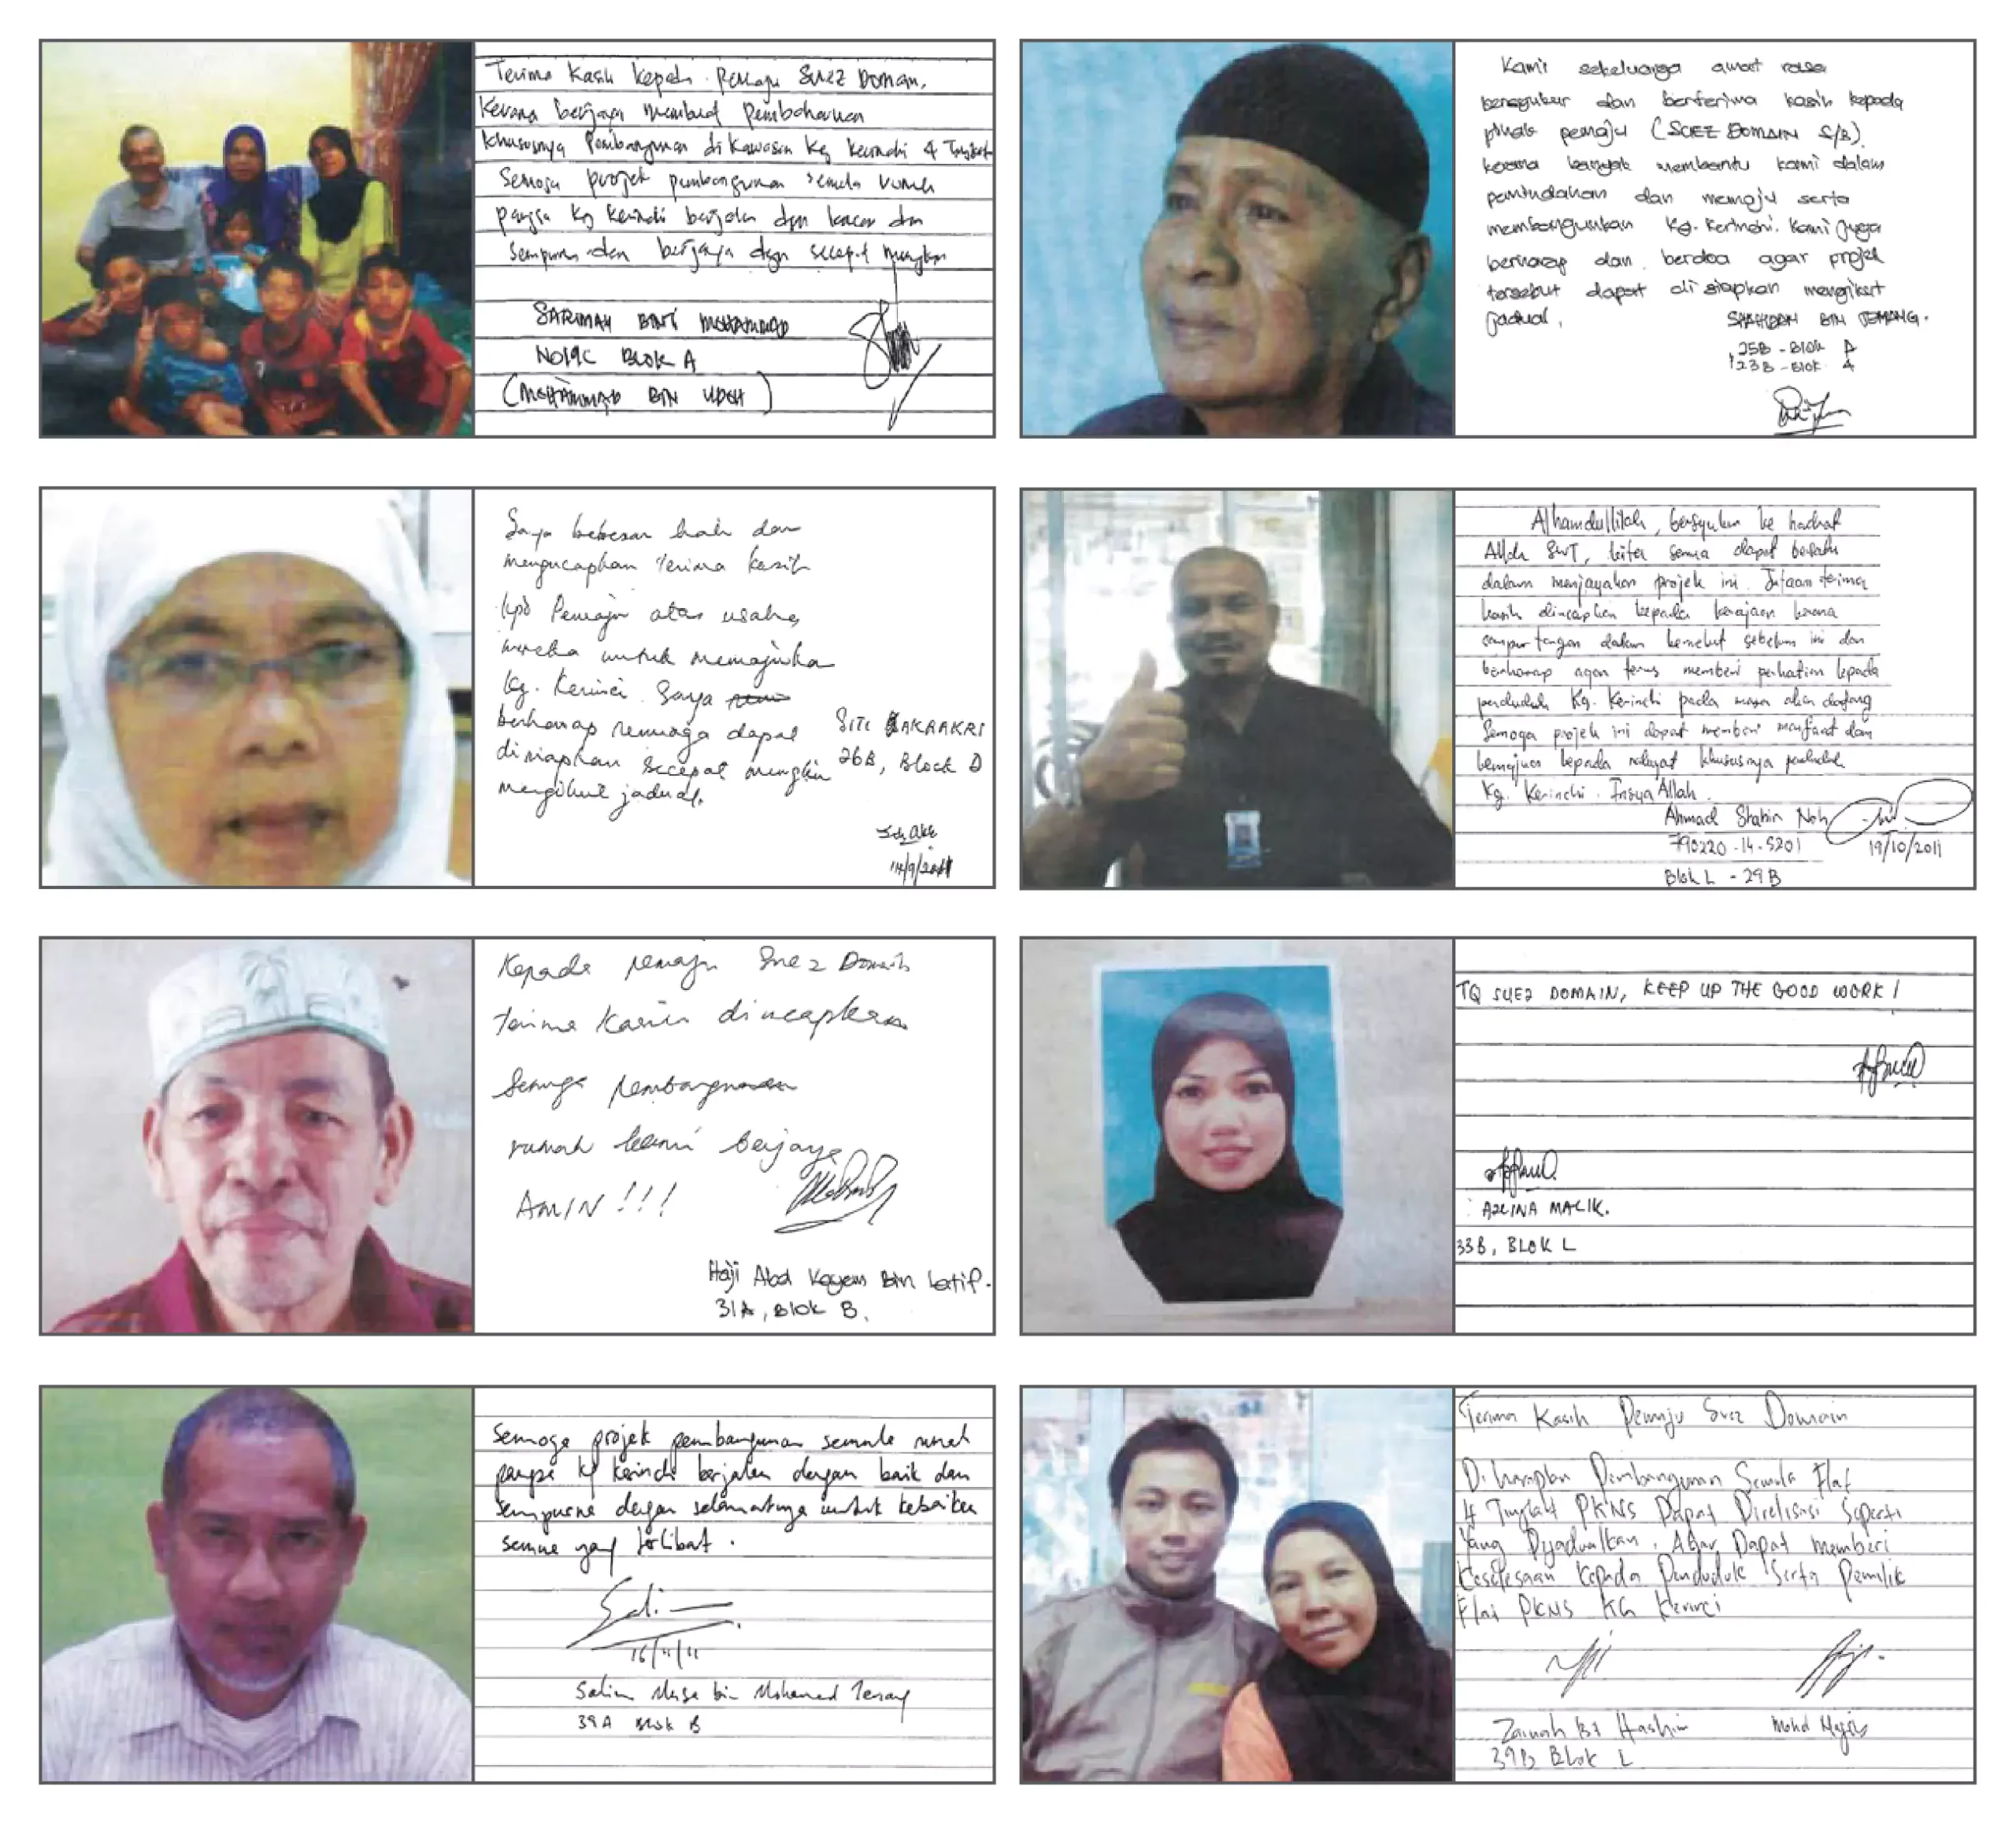 Terima Kasih Kepada Pemaju Suez Domain,
Kerana berjaya membuat Pembaharuan
khususnya Pembangunan di Kawasan Kg Kerinchi 4 Tingkat
Semoga projek pembangunan semula rumah
pangsa Kg Kerinchi berjalan dgn lancar dan
sempurna dan berjaya dgn secepat mungkin
SARIMAH BINTI MOHAMMAD
NO19C BLOK A
(MOHAMMAD BIN UDOH)
Kami sekeluarga amat rasa
bersyukur dan berterima kasih kepada
pihak pemaju (SUEZ DOMAIN S/B)
kerana banyak membantu kami dalam
pemindahan dan memaju serta
membangunkan Kg. Kerinchi. Kami juga
berharap dan berdoa agar projek
tersebut dapat di siapkan mengikut
jadual.
SHAHIDAN BIN
25B - Blok A
23B - Blok A
Saya bebesar hati dan
mengucapkan terima kasih
kpd Pemaju atas usaha
mereka untuk memajukan
Kg. Kerinci. Saya
berharap semoga dapat
disiapkan secepat mungkin
mengikut jadual.
SITI
26B, Block D
14/9/2011
Alhamdullilah, bersyukur ke hadrat
Allah SWT, kita semua dapat bersatu
dalam menjayakan projek ini. Jutaan terima
kasih diucapkan kepada kerajaan kerana
campur tangan dalam kemelut sebelum ini dan
berharap agar terus memberi perhatian kepada
penduduk Kg. Kerinchi pada masa akan datang
Semoga projek ini dapat memberi manfaat dan
kemajuan kepada rakyat khususnya penduduk
Kg. Kerinchi. InsyaAllah.
Ahmad Shahir Noh
790220-14-5201
19/10/2011
Blok L - 29B
Kepada pemaju Suez Domain
terima kasih diucapkan
Semoga pembangunan
rumah kami berjaya
AMIN!!!
Haji Abd Kayum Bin Latif.
31A, Blok B.
TQ SUEZ DOMAIN, KEEP UP THE GOOD WORK!
: AZLINA MALIK.
33B, BLOK L
Semoga projek pembangunan semula rumah
pangsa Kg Kerinchi berjalan dengan baik dan
sempurna dengan selamatnya untuk kebaikan
semua yang terlibat.
16/11/11
Salim Musa bin Mohamed
39A Blok B
Terima Kasih Pemaju Suez Domain
Diharapkan Pembangunan Semula Flat
4 Tingkat PKNS Dapat Direlisasi Seperti
Yang Dijadualkan. Agar Dapat memberi
Keselesaan Kepada Penduduk Serta Pemilik
Flat PKNS KG Kerinci
Zainah Bt Hashim
Mohd
39B Blok L